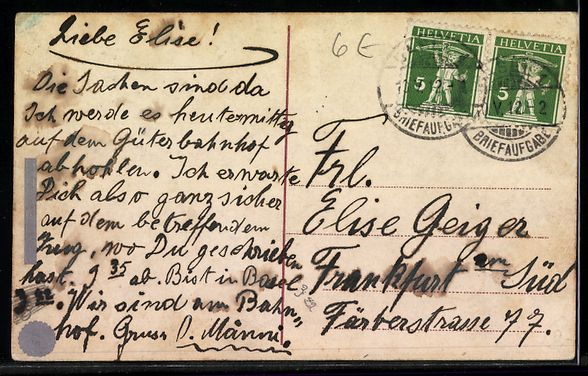 Liebe Elise!
Die Sachen sind da
Ich werde es heutemittag
auf dem Güterbahnhof
abhohlen. Ich erwarte
Dich also ganz sicher
auf dem betreffendem
Zug, wo Du geschrieben
hast. 9 35 ab. Bist in Basel
3 22. Wir sind am Bahn-
hof. Gruss O. Männi.
6 E
HELVETIA
5
HELVETIA
5
BRIEFAUFGABE
BRIEFAUFGABE
Frl.
Elise Geiger
Frankfurt am Süd
Färberstrasse 77.